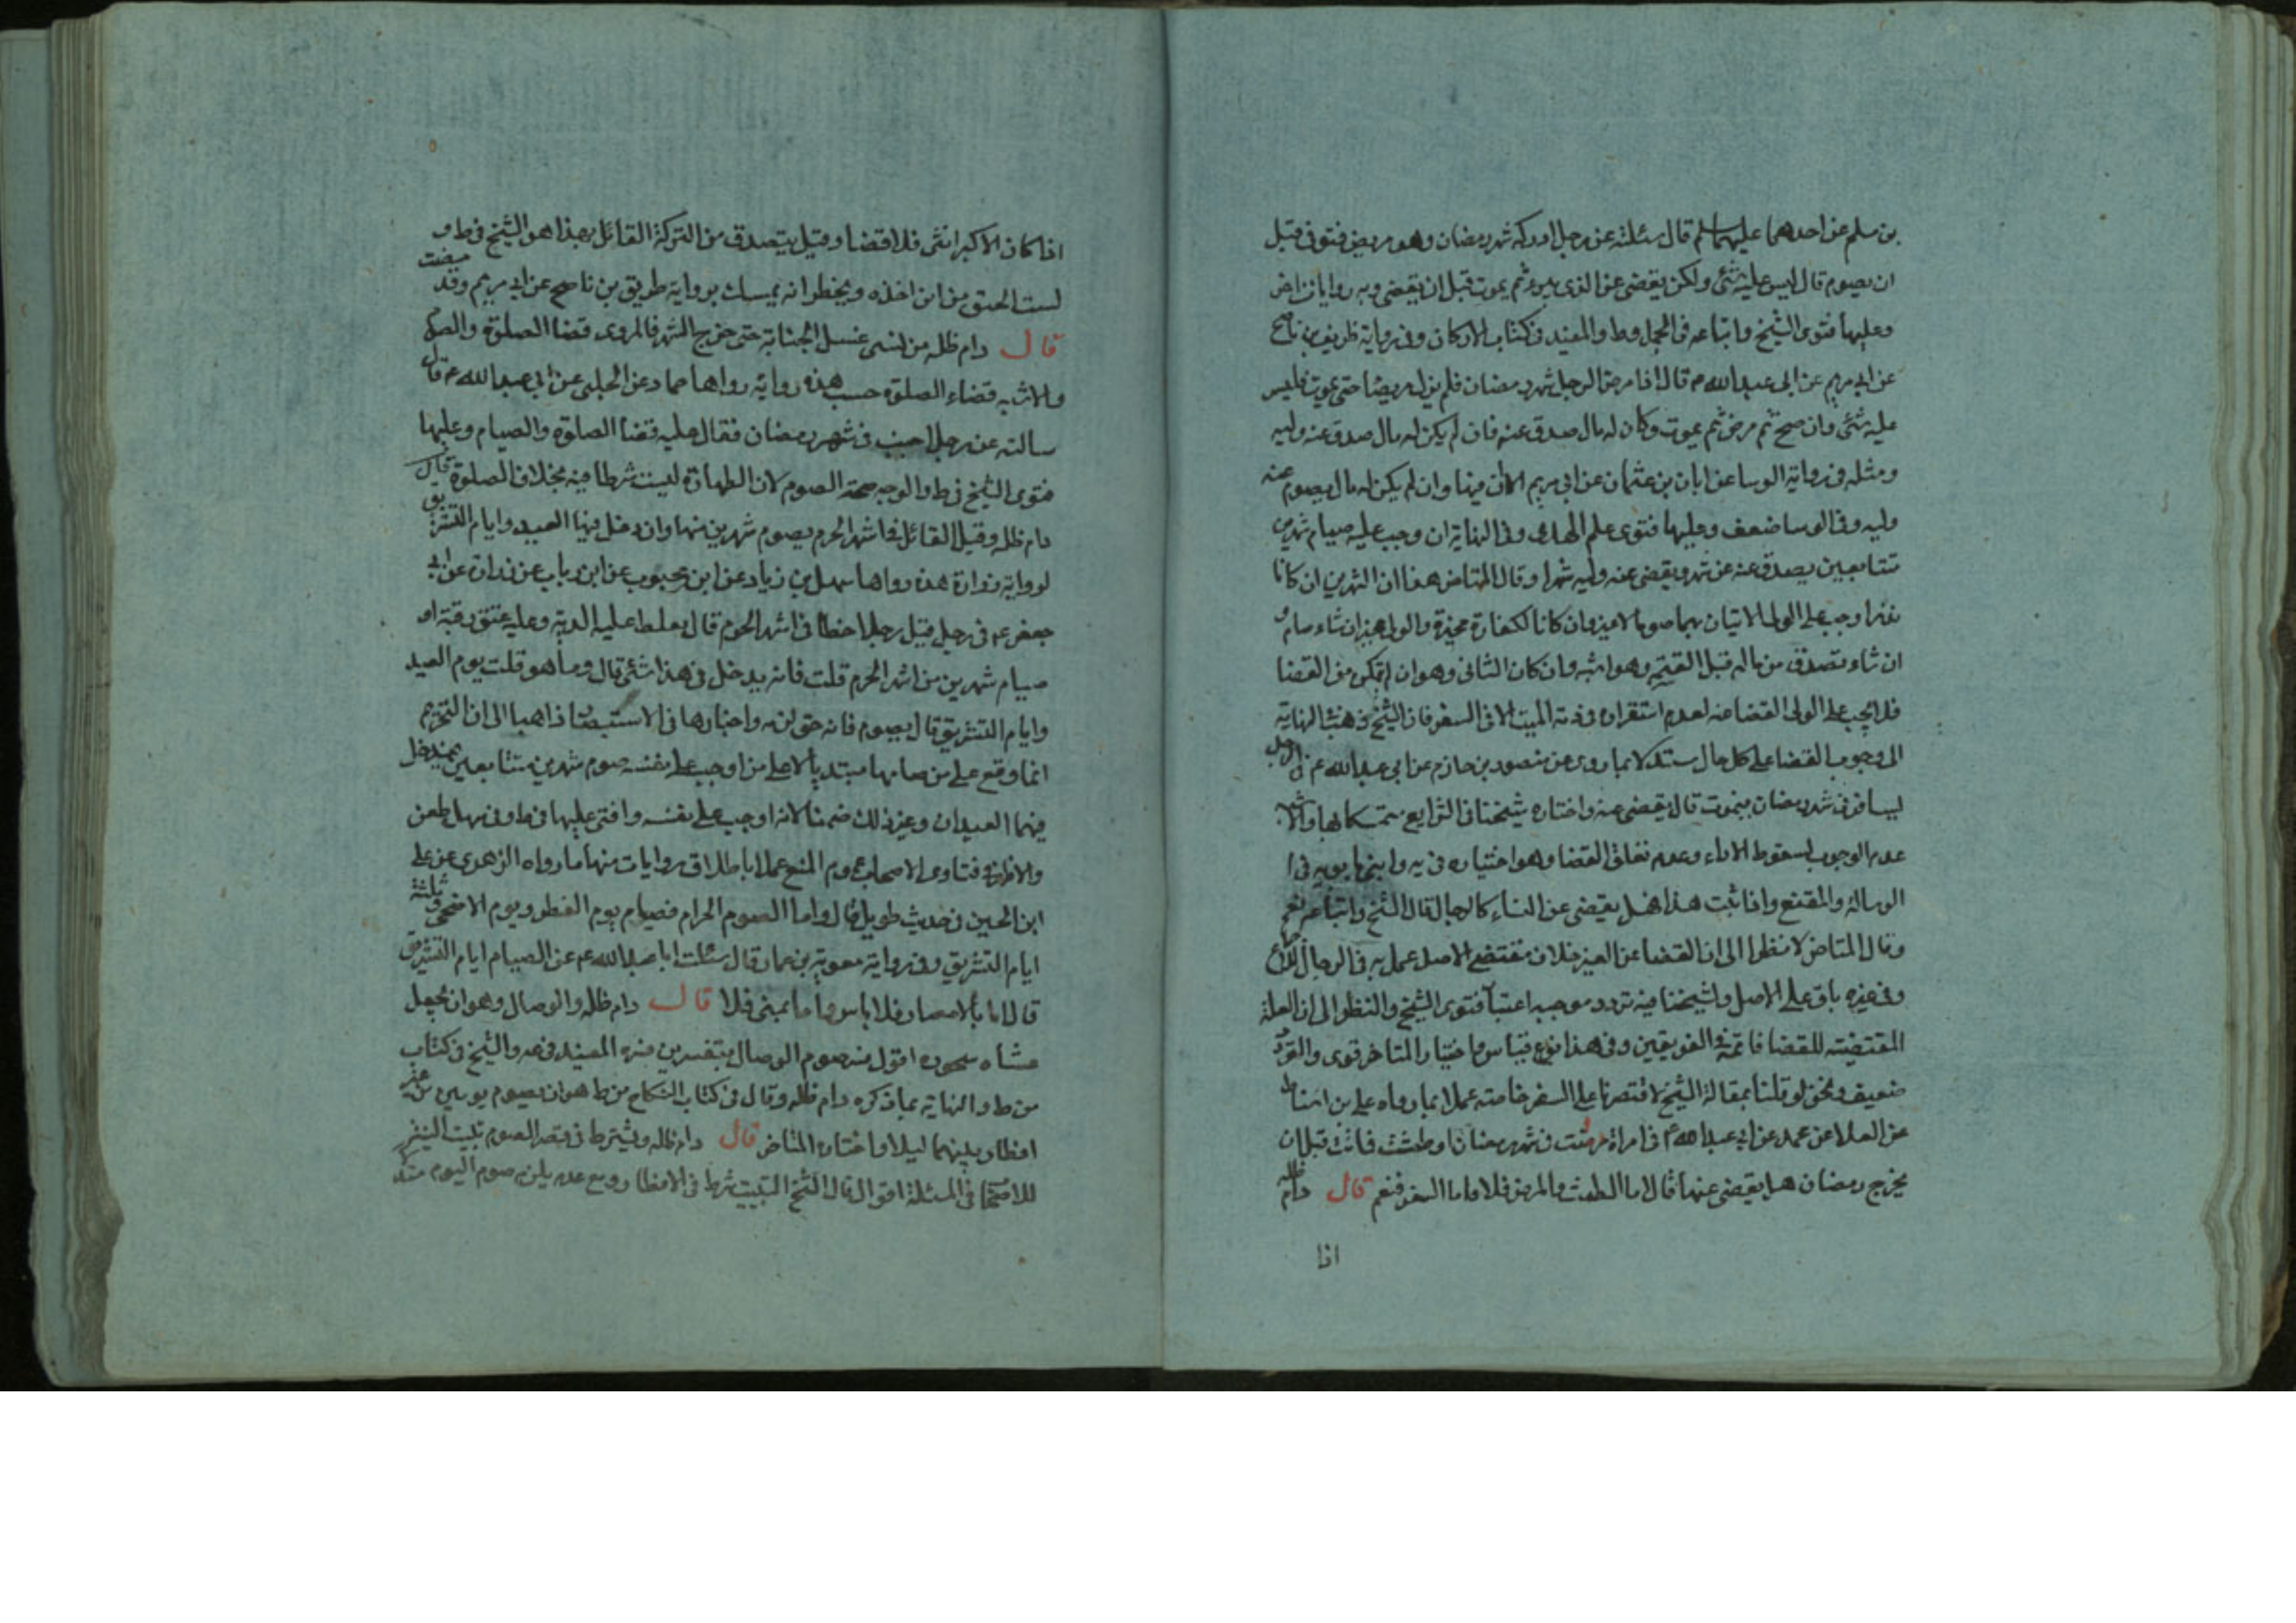 بن مسلم عن احدهما عليهما سلم قال سئلته عن رجل ادركه شهر رمضان وهو مريض فتوفى قبل
ان يصوم قال ليس عليه شئ ولكن يقضى عن الذى يبرء ثم يموت قبل ان يقضى وبه روايات اخر
وعليها فتوى الشيخ واتباعه فى الجمل وط والمفيد فى كتاب الاركان وفى رواية ظريف بن ناصح
عن ابى مريم عن ابى عبد الله ع قال اذا مرض الرجل شهر رمضان فلم يزل مريضا حتى يموت فليس
عليه شئ وان صح ثم مرض ثم يموت وكان له مال صدق عنه فان لم يكن له مال صدق عنه وليه
ومثله فى رواية الوسا عن ابان بن عثمان عن ابى مريم الا ان فيها وان لم يكن له مال يصوم عنه
وليه وفى الوسا ضعف وعليها فتوى علم الهدى وفى النهاية ان وجب عليه صيام شهرين
متتابعين يصدق عنه عن شهر ويقضى عنه وليه شهرا وقال المتاخر هذا ان الشهرين ان كانا
نذرا وجب على الولى الاتيان بهما صوما لا غير وان كانا لكفارة مخيرة والولى مخير ان شاء صام و
ان شاء تصدق من ماله قبل القسمة وهو اشبه وان كان الثانى وهو ان لم يتمكن من القضا
فلا يجب على الولى القضا عنه لعدم استقراره فى ذمة الميت الا فى السفر فان الشيخ ذهب فى النهاية
الى وجوب القضا على كل حال مستدلا بما روى عن منصور بن حازم عن ابى عبد الله ع فى الرجل
يسافر فى شهر رمضان فيموت قال يقضى عنه واختاره شيخنا فى الشرايع متمسكا بها والاشبه
عدم الوجوب لسقوط الاداء وعدم تعلق القضا وهو اختياره فى يه وابنى بابويه فى
الرسالة والمقنع واذا ثبت هذا فهل يقضى عن النساء كالرجال قال الشيخ واتباعه نعم
وقال المتاخر لا نظرا الى ان القضا عن الغير خلاف مقتضى الاصل عمل به فى الرجال للاجماع
وفى غيره باق على الاصل ولشيخنا فيه تردد موجبه اعتبار فتوى الشيخ والنظر الى ان العلة
المقتضية للقضا قائمة فى الفريقين وفى هذا نوع قياس واختيار المتاخر قوى والتردد
ضعيف ونحن لو قلنا بمقالة الشيخ لاقتصرنا على السفر خاصته عملا بما رواه على بن اسباط
عن العلا عن محمد عن ابى عبد الله ع فى امراة مرضت فى شهر رمضان او طمثت فماتت قبل ان
يخرج رمضان هل يقضى عنها قال اما الطمث والمرض فلا واما السفر فنعم قال دام ظله
اذا
اذا كان الاكبر انثى فلا قضا وقيل يتصدق من التركة القائل بهذا هو الشيخ فى ط و
لست احقق من اين اخذه ويخطر انه تمسك برواية ظريف بن ناصح عن ابى مريم وقد مضت
قال دام ظله من نسى غسل الجنابة حتى خرج الشهر فالمروى قضا الصلوة والصوم
والاشبه قضاء الصلوة حسب هذه رواية رواها حماد عن الحلبى عن ابى عبد الله ع قال
سالته عن رجل اجنب فى شهر رمضان فقال عليه قضا الصلوة والصيام وعليها
فتوى الشيخ فى ط والوجه صحة الصوم لان الطهارة ليست شرطا فيه بخلاف الصلوة قال
دام ظله وقيل القاتل فى اشهر الحرم يصوم شهرين منها وان دخل فيها العيد وايام التشريق
لرواية زرارة هذه رواها سهل بن زياد عن ابن محبوب عن ابن رياب عن زرارة عن ابى
جعفر ع فى رجل قتل رجلا خطا فى اشهر الحرم قال يغلظ عليه الدية وعليه عتق رقبة او
صيام شهرين من اشهر الحرم قلت فانه يدخل فى هذا شئ قال وما هو قلت يوم العيد
وايام التشريق قال يصوم فانه حق لزمه واختارها فى الاستبصار ذاهبا الى ان التحريم
انما وقع على من صامها مبتديا لا على من اوجب على نفسه صوم شهرين متتابعين فيدخل
فيهما العيدان وغير ذلك ضمنا لانه اوجب على نفسه وافتى عليها فى ط وفى سهل طعن
والاظهر فى فتاوى الاصحاب عموم المنع عملا باطلاق روايات منها ما رواه الزهرى عن على
ابن الحسين فى حديث طويل قال واما الصوم الحرام فصيام يوم الفطر ويوم الاضحى وثلثة
ايام التشريق وفى رواية معوية بن عمار قال سئلت ابا عبد الله ع عن الصيام ايام التشريق
قال اما بالامصار فلا باس واما بمنى فلا قال دام ظله والوصال وهو ان يجعل
عشاه سحوره اقول صوم الوصال بتفسرين فسره المفيد فى عه والشيخ فى كتاب
من ط والنهاية بما ذكره دام ظله وقال فى كتاب النكاح من ط هو ان يصوم يومين من غير
افطار بينهما ليلا واختاره المتاخر قال دام ظله ويشترط فى قصر الصوم تبييت النية
للاصحاب فى المسئلة اقوال قال الشيخ التبييت شرط فى الافطار ومع عدمه يلزمه صوم اليوم